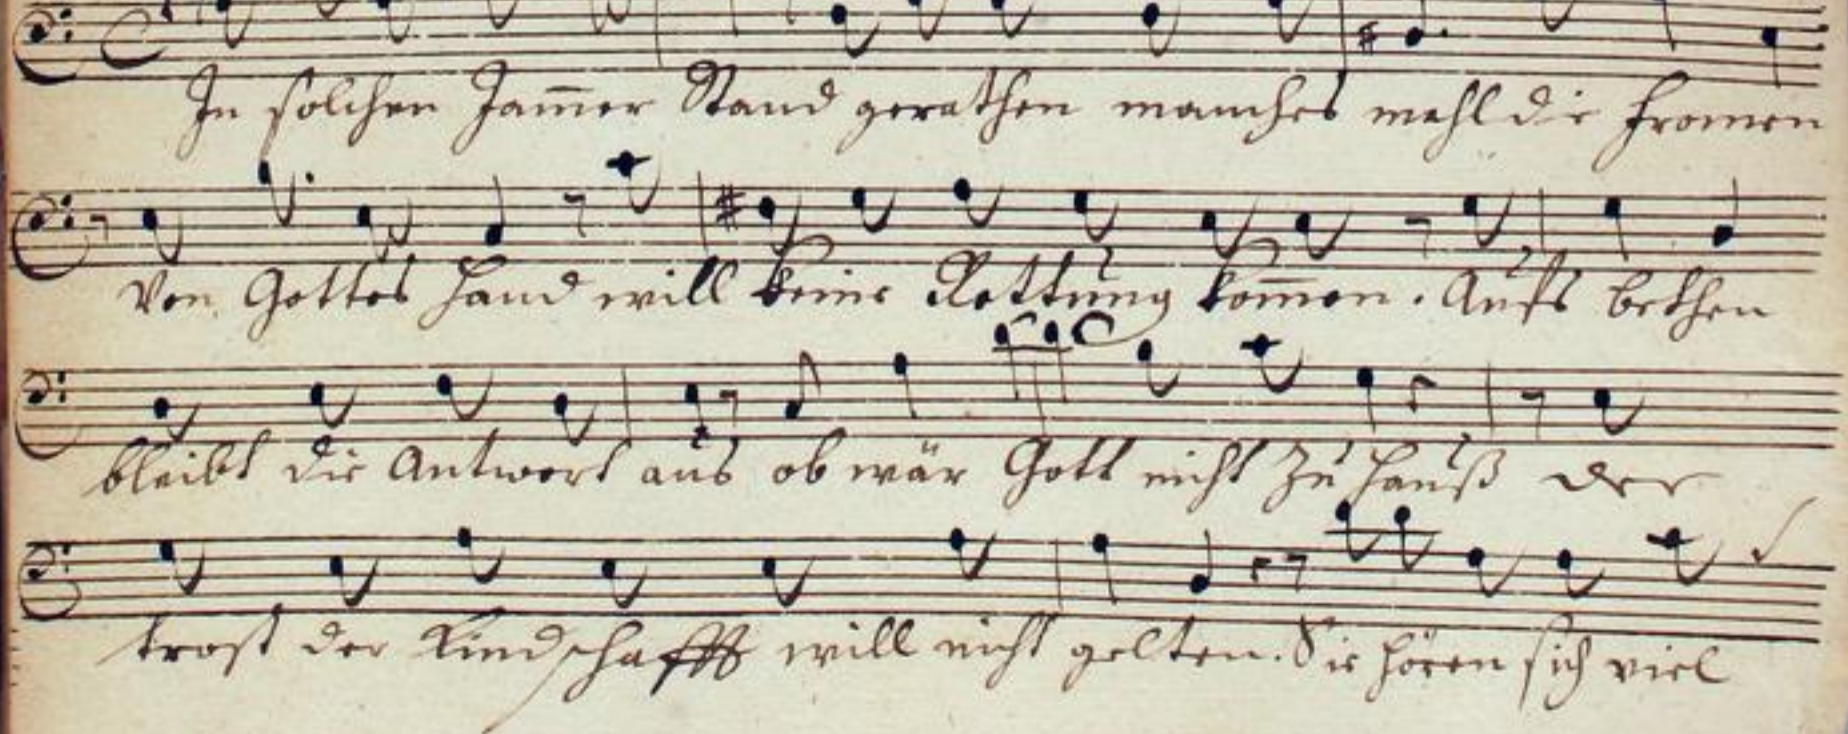 In solchen Jam̄er Stand gerathen manches mahl die Fromen
Von Gottes Hand will keine Rettung kom̄en. Aufs bethen
bleibt die Antwort aus ob wär Gott nicht zu Hauß der
trost der Kindschafft will nicht gelten. Sie hören sich viel